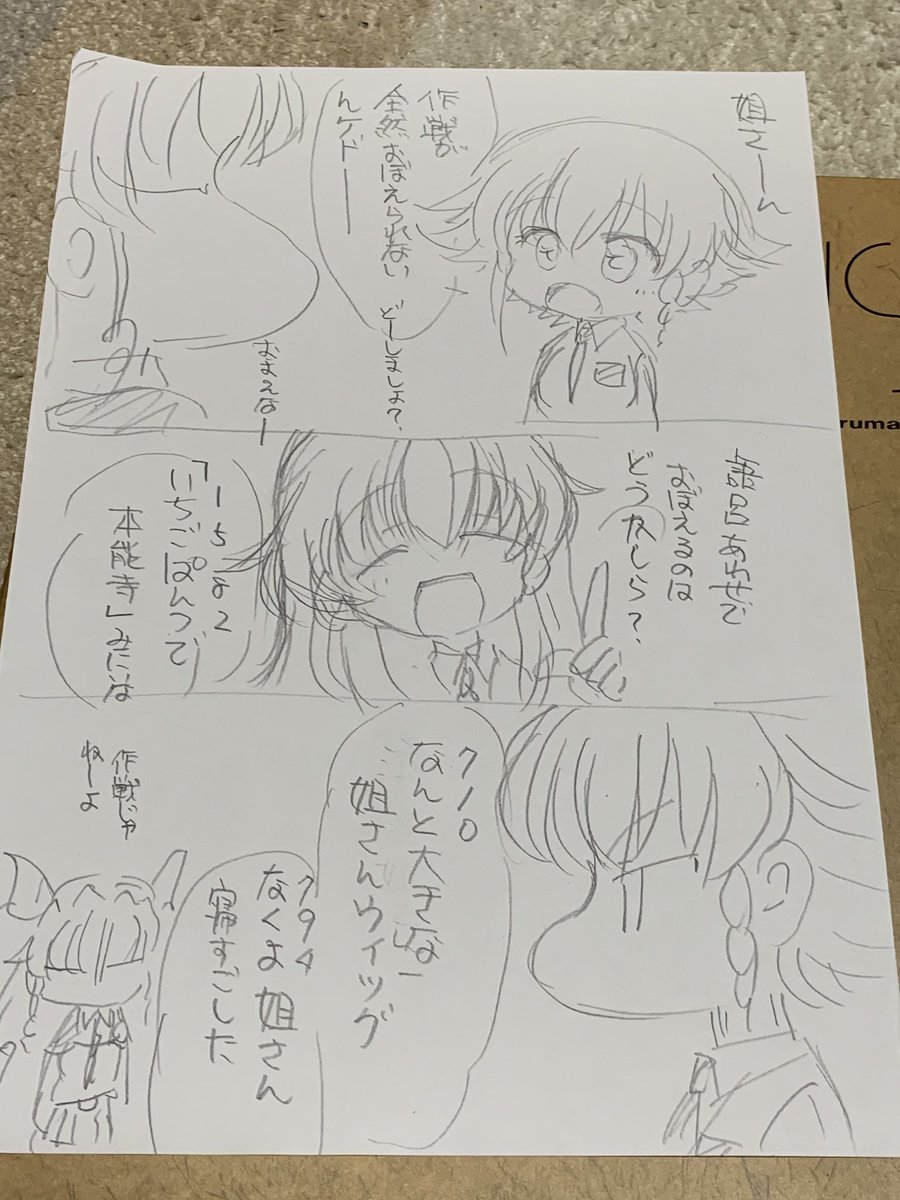 姐さーん
作戦が
全然おぼえられない
んケドー
どーしましょ?
おまえなー
語呂あわせで
おぼえるのは
どうかしら?
1 5 8 2
「いちごぱんつで
本能寺」みたいな
710
なんと大きな
姐さんウィッグ
794
なくよ姐さん
寝すごした
作戦じゃ
ねーよ
ruma